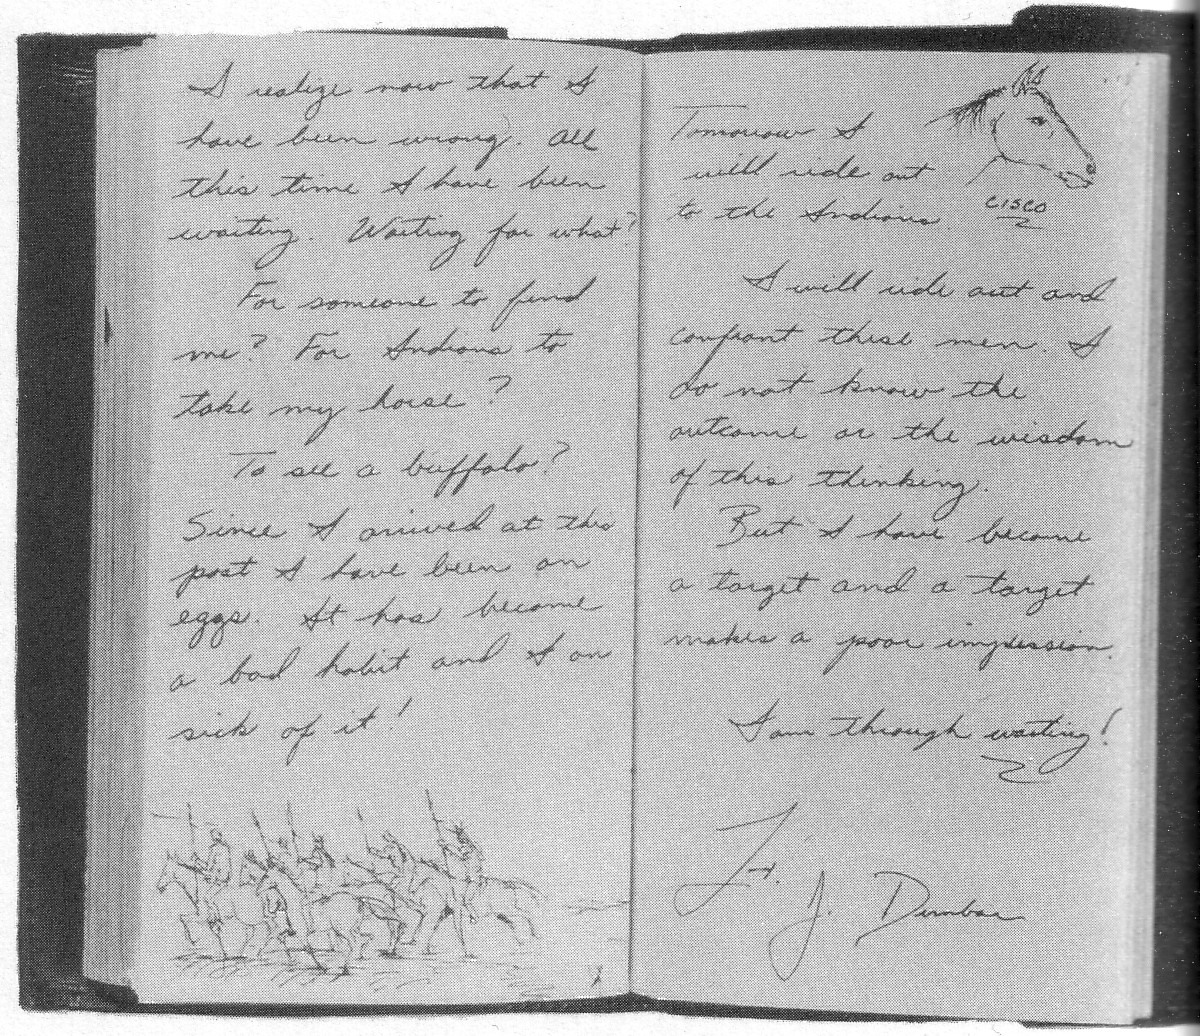 I realize now that I
have been wrong. All
this time I have been
waiting. Waiting for what?
For someone to find
me? For Indians to
take my horse?
To see a buffalo?
Since I arrived at this
post I have been on
eggs. It has become
a bad habit and I am
sick of it!
Tomorrow I
will ride out
to the Indians.
CISCO
I will ride out and
confront these men. I
do not know the
outcome or the wisdom
of this thinking.
But I have become
a target and a target
makes a poor impression.
I am through waiting!
Lt.
J. Dunbar